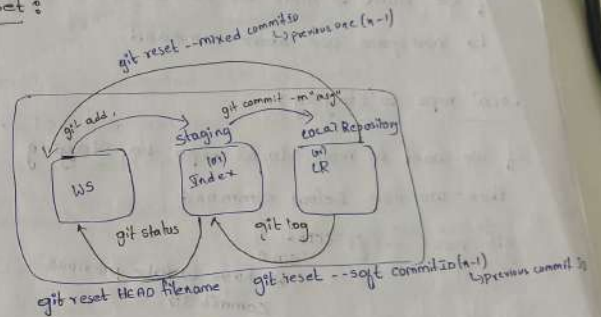 et :
git reset --mixed commitID
↳previous one (n-1)
git add .
git commit -m"msg"
Staging
(or)
Index
Local Repository
(or)
LR
WS
git status
git log
git reset HEAD filename
git reset --soft commitID(n-1)
↳previous commit ID